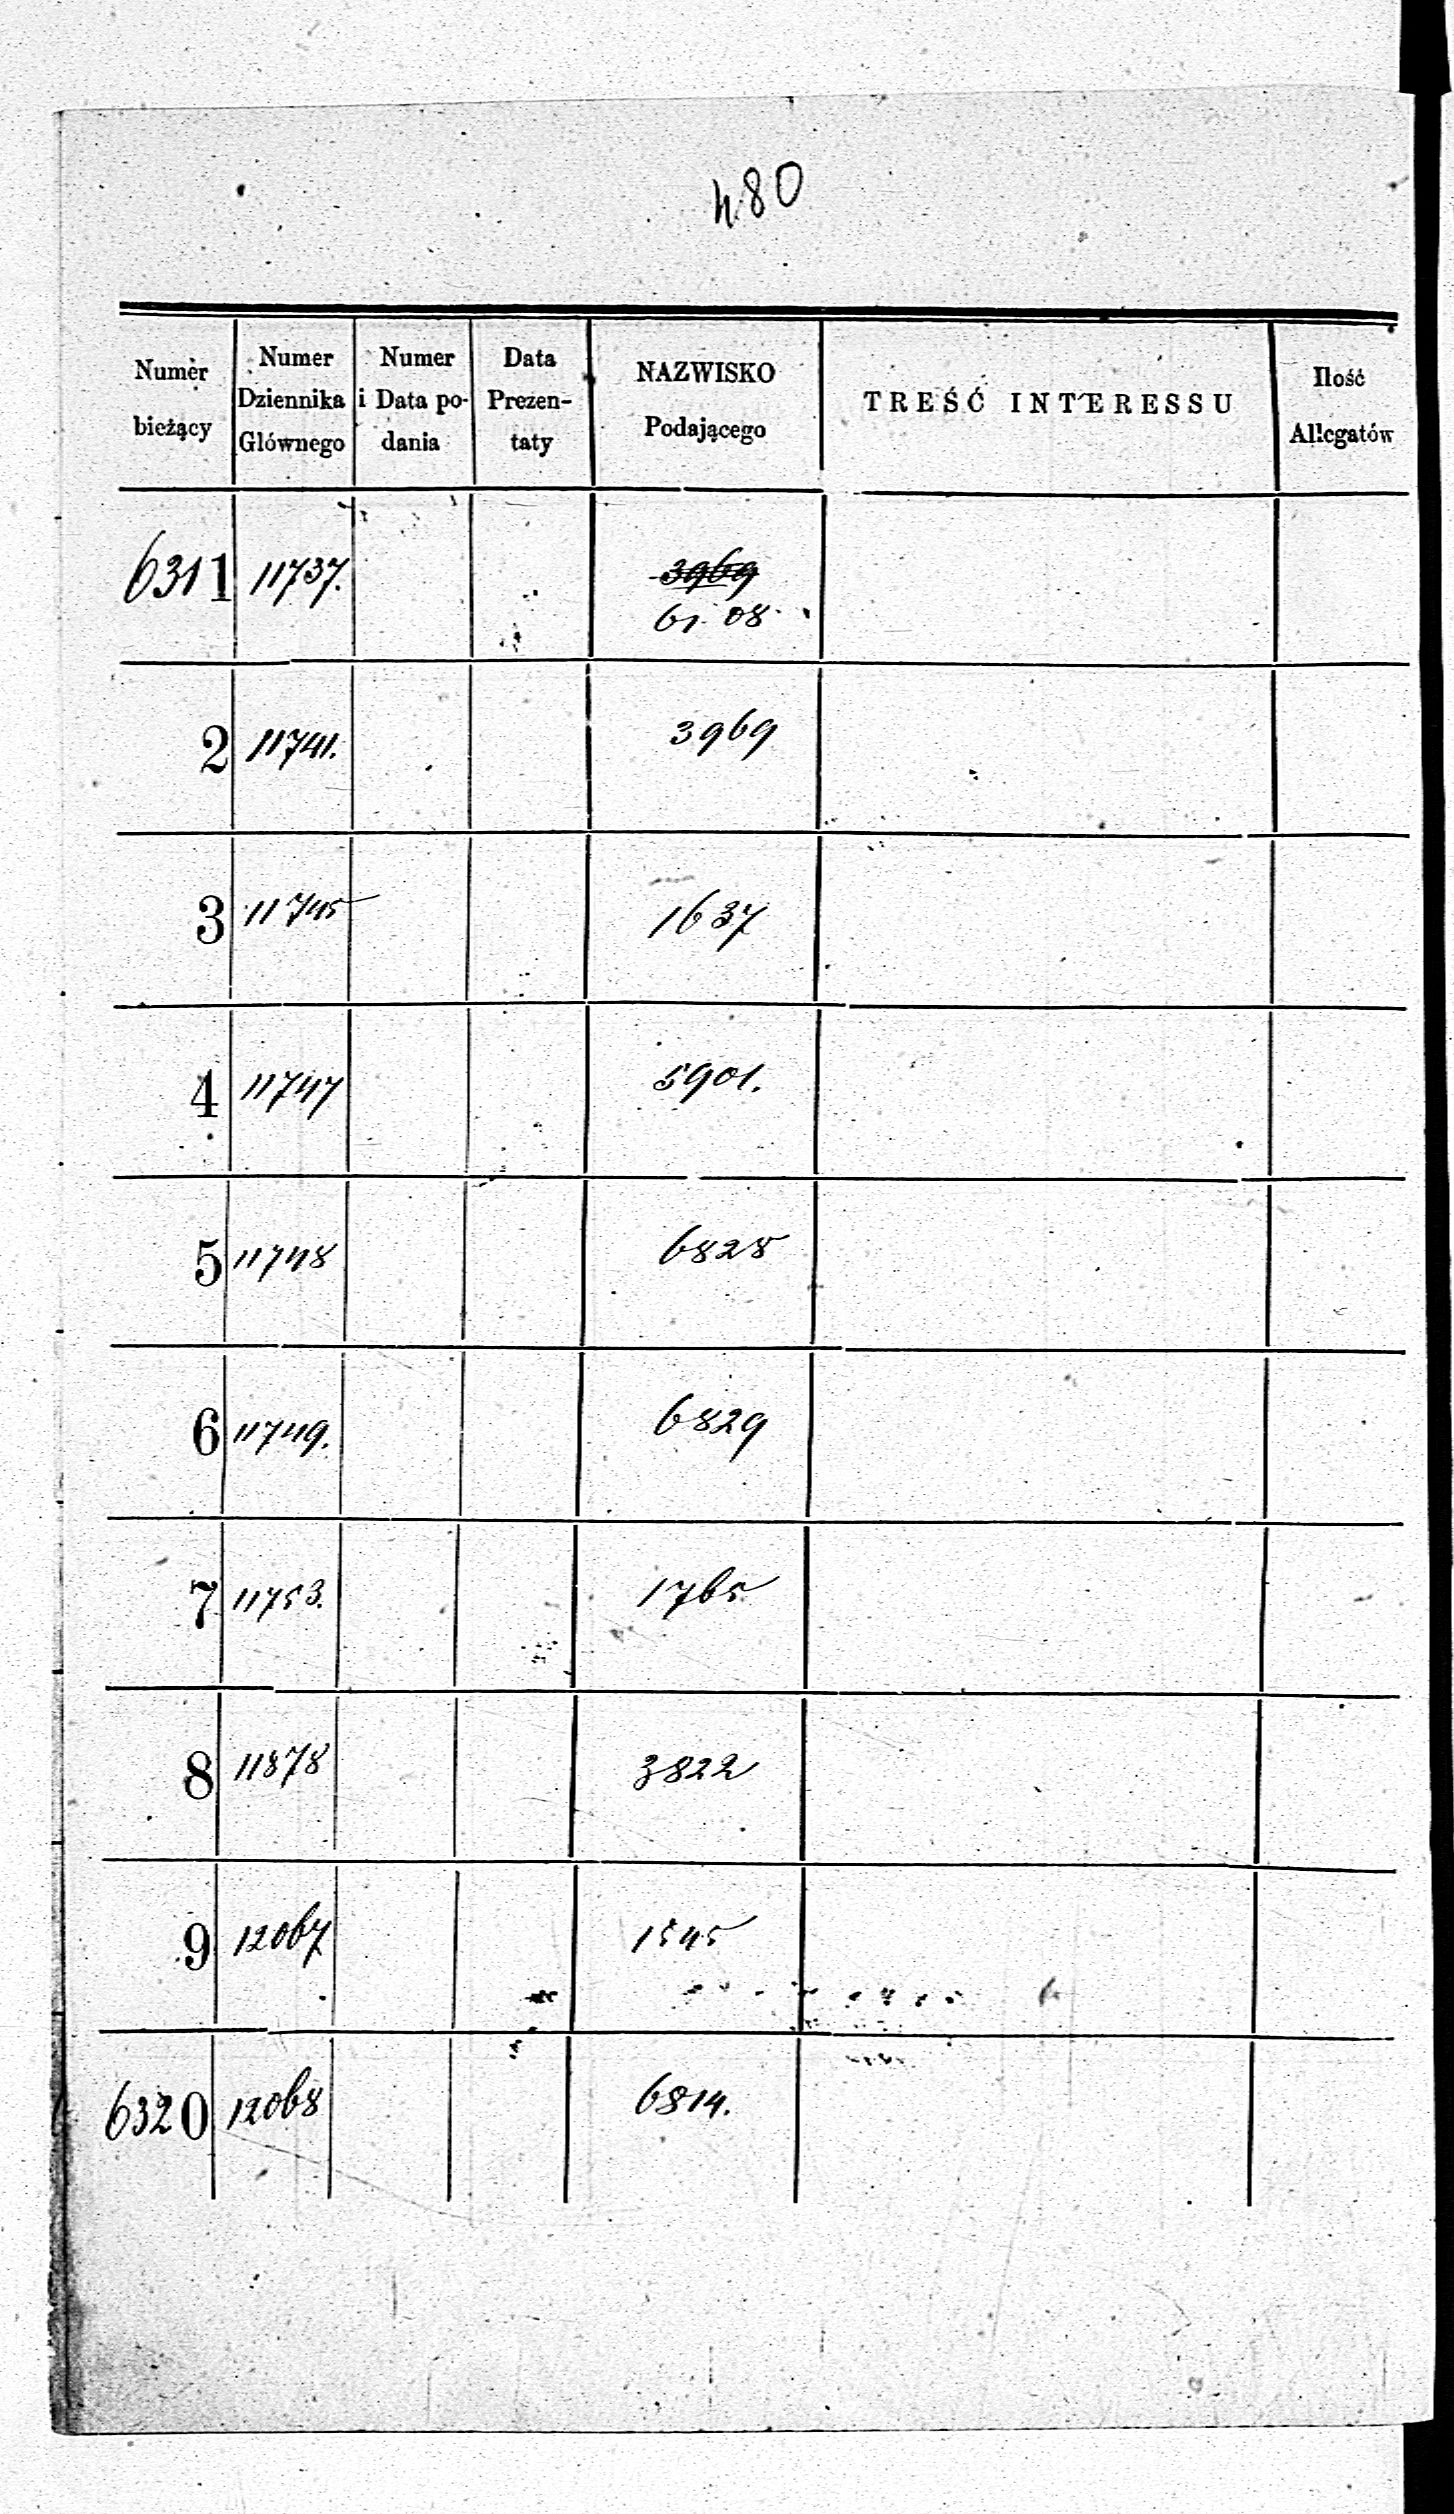 480
Numer bieżący | Numer Dziennika Głównego | Numer i Data podania | Data Prezentaty | NAZWISKO Podającego | TREŚĆ INTERESSU | Ilość Allegatów
6311 11737. 3969
61 08
2 11741. 3969
3 11745 1637
4 11747 5901.
5 11748 6828
6 11749. 6829
7 11753. 1765
8 11878 3822
9 12067 1545
6320 12068 6814.